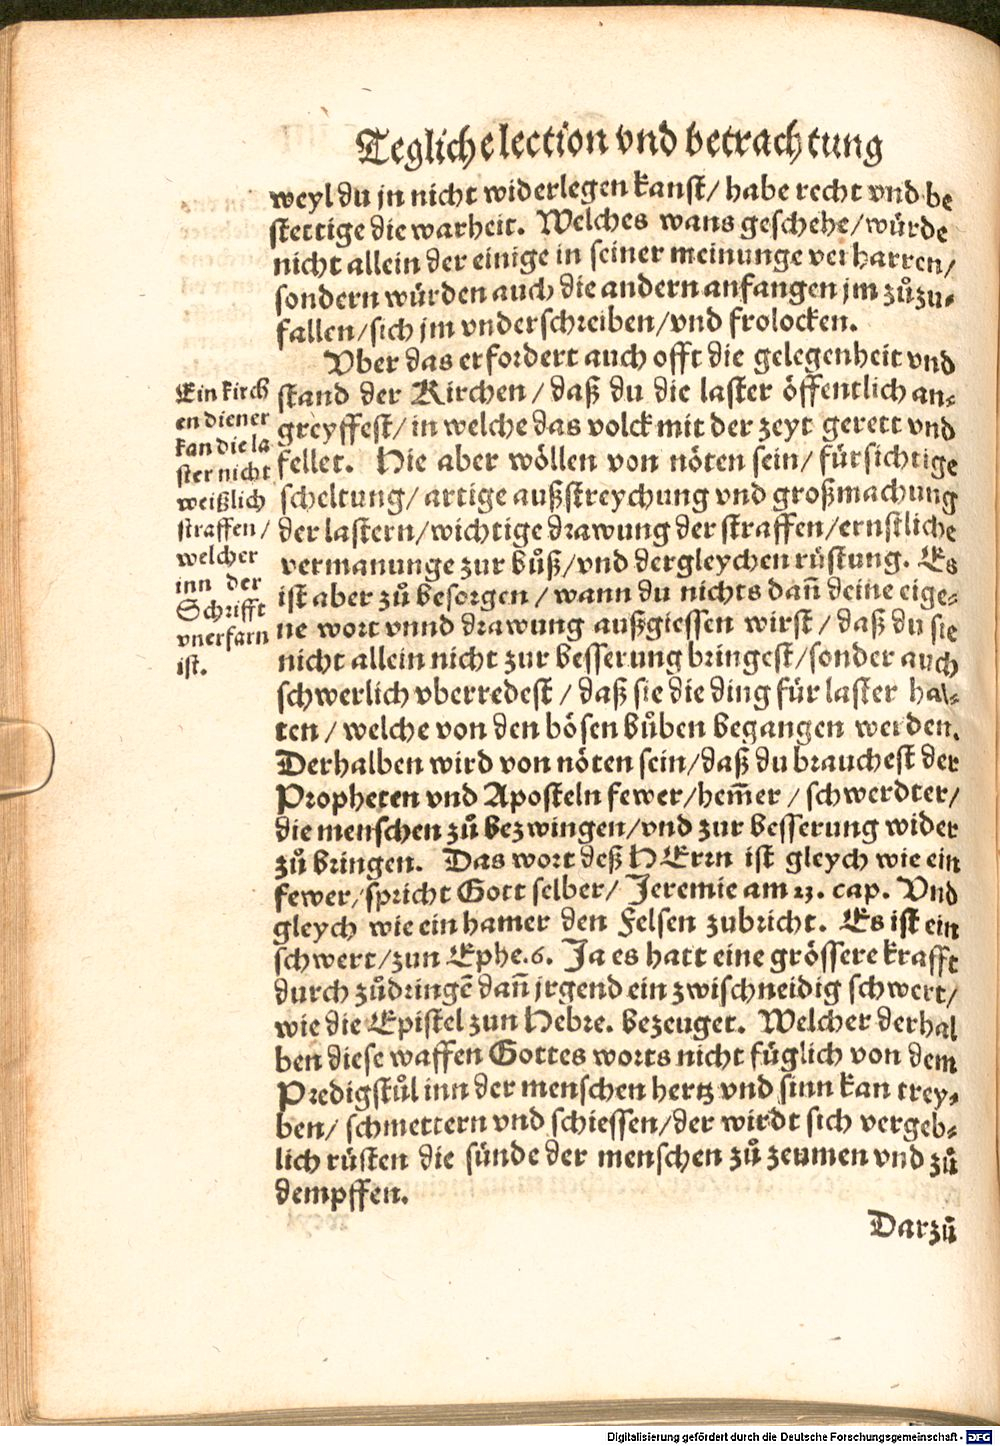 Tegliche lection vnd betrachtung
weyl du jn nicht widerlegen kanst/ habe recht vnd be
stettige die warheit. Welches wans geschehe/würde
nicht allein der einige in seiner meinunge verharren/
sondern würden auch die andern anfangen jm zůzu⸗
fallen/sich jm vnderschreiben/vnd frolocken.
Vber das erfordert auch offt die gelegenheit vnd
stand der Kirchen/ daß du die laster öffentlich an⸗
greyffest/in welche das volck mit der zeyt gerett vnd
fellet. Hie aber wöllen von nöten sein/ fürsichtige
scheltung/ artige außstreychung vnd großmachung
der lastern/wichtige drawung der straffen/ernstliche
vermanunge zur bůß/vnd dergleychen rüstung. Es
ist aber zů besorgen/ wann du nichts dañ deine eige⸗
ne wort vnnd drawung außgiessen wirst/ daß du sie
nicht allein nicht zur besserung bringest/sonder auch
schwerlich vberredest/ daß sie die ding für laster hal⸗
ten/ welche von den bösen bůben begangen werden.
Derhalben wird von nöten sein/daß du brauchest der
Propheten vnd Aposteln fewer/hem̃er/ schwerdter/
die menschen zů bezwingen/vnd zur besserung wider
zů bringen. Das wort deß HErrn ist gleych wie ein
fewer/spricht Gott selber/ Jeremie am 23. cap. Vnd
gleych wie ein hamer den Felsen zubricht. Es ist ein
schwert/zun Ephe.6. Ja es hatt eine grössere krafft
durch zůdringē dañ jrgend ein zwischneidig schwert/
wie die Epistel zun Hebre. bezeuget. Welcher derhal
ben diese waffen Gottes worts nicht füglich von dem
Predigstůl inn der menschen hertz vnd sinn kan trey⸗
ben/ schmettern vnd schiessen/der wirdt sich vergeb⸗
lich rüsten die sünde der menschen zů zeumen vnd zů
dempffen.
Darzů
Ein kirch
en diener
kan die la
ster nicht
weißlich
straffen/
welcher
inn der
Schrifft
vnerfarn
ist.
Digitalisierung gefördert durch die Deutsche Forschungsgemeinschaft - DFG